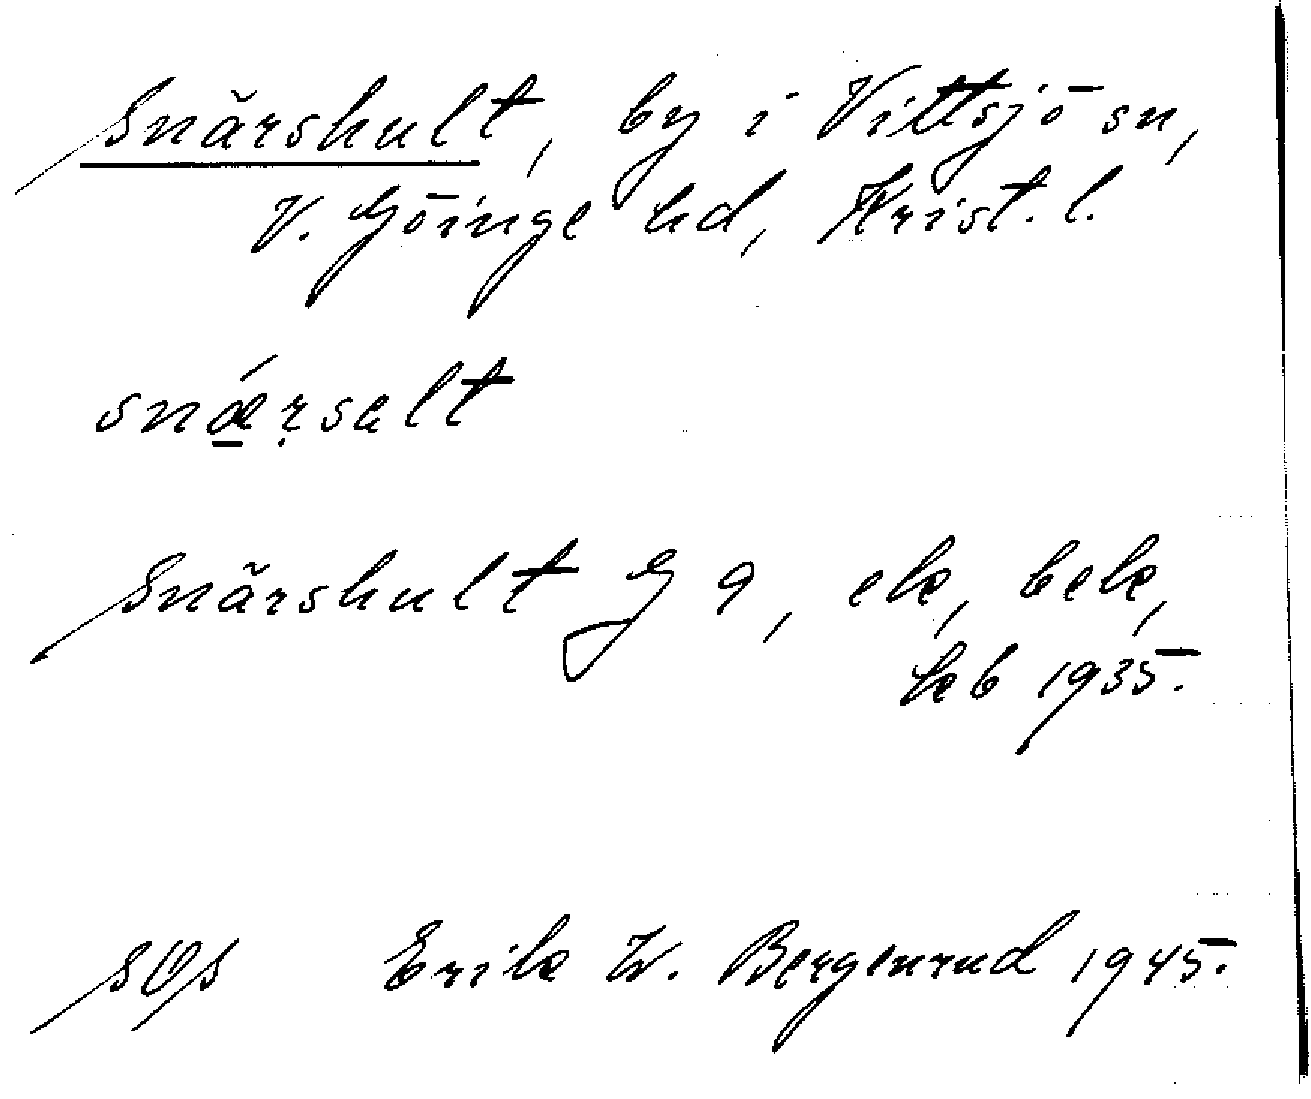 Snärshult, by i Vittsjö sn,
V. Göinge hd, Krist. l.
snǽ̠ṛsalt
Snärshult G 9, ek, bek,
hb 1935.
SOS Erik W. Bergenrud 1945.